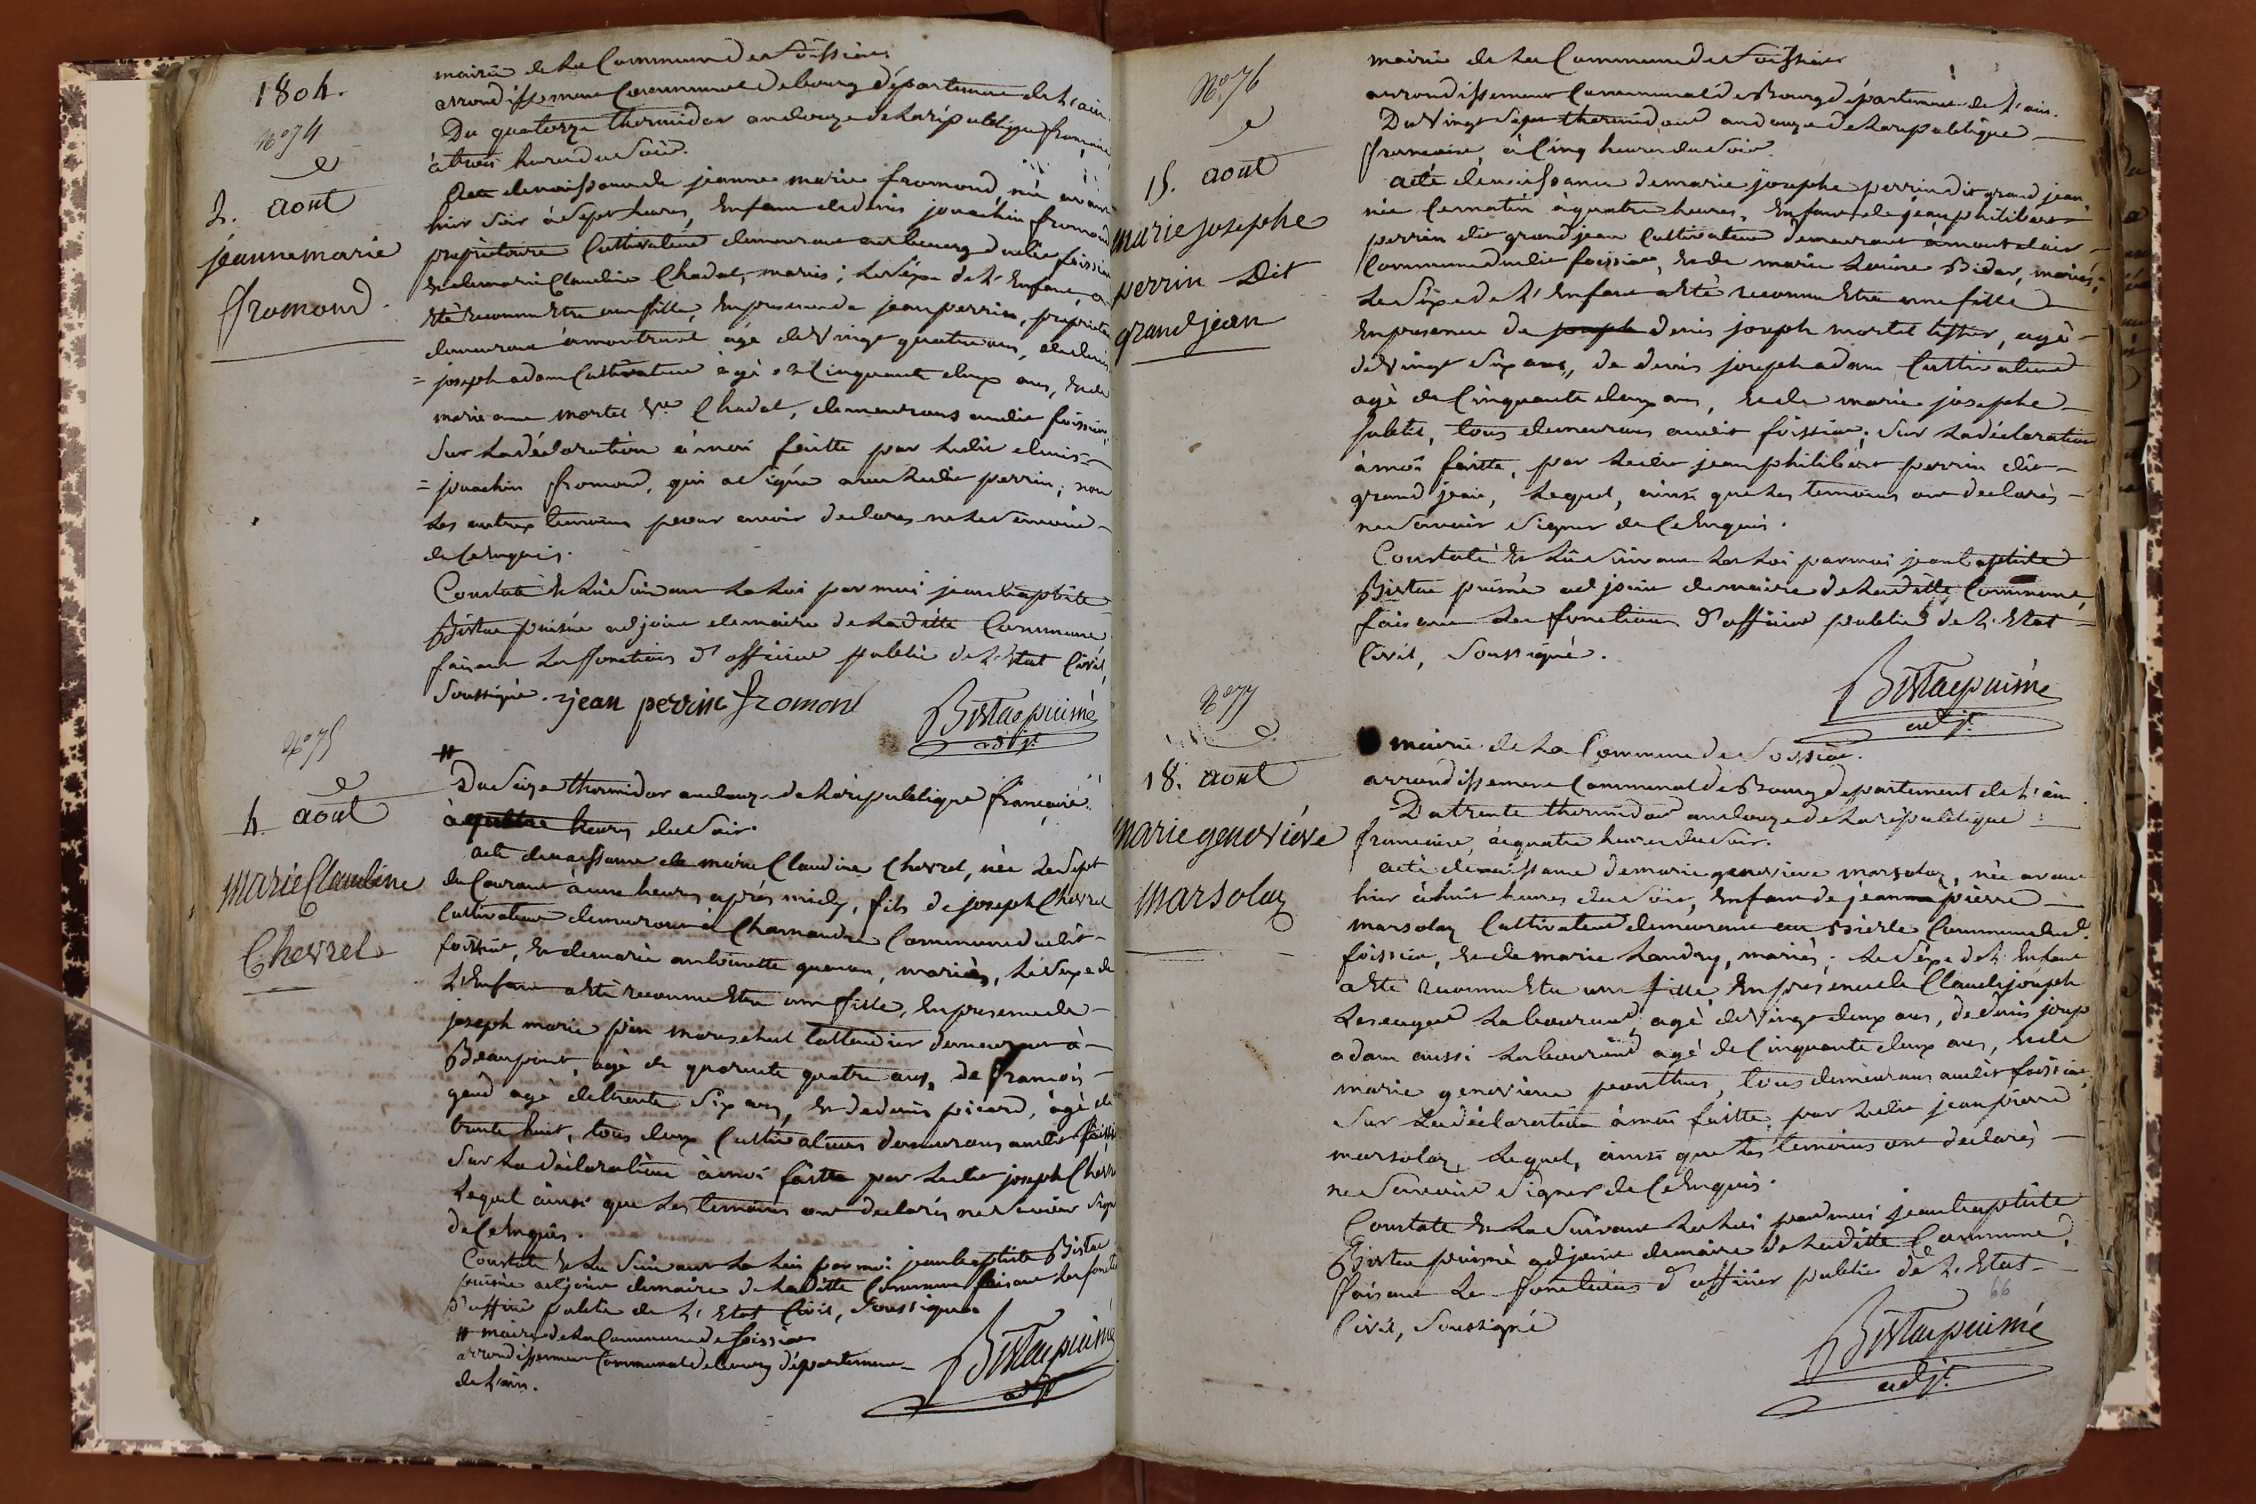 1804.
N.º 74
2. août
jeanne marie
fromond.
mairie de La Commune de foissiat
arrondissement Communal de bourg département de L'ain.
Du quatorze thermidor an douze de La république française
à trois heures du soir.
Acte de naissance de jeanne marie fromond, née avant
hier soir à sept heures, Enfant de denis jouachin fromond
propriétaire Cultivateur demeurant au bourg dudit foissiat
Et de marie Claudine Chadal, mariés; Le sexe de L'Enfant a
Eté reconnu Etre une fille, En presence de jean perrin, propriétaire
demeurant à montrevel agé de vingt quatre ans, de denis
= joseph adam Cultivateur agé de Cinquante deux ans, Et de
marie anne mortel Vve Chadal, demeurans audit foissiat,
Sur La déclaration à moi faitte par Ledit denis =
= jouachin fromond, qui a signé avec Ledit perrin; non
Les autres temoins pour avoir declarés ne Le savoir
de Ce Enquis.
Constaté Et Lu suivant La Loi par moi jean baptiste
Bistac puisné adjoint de maire de Laditte Commune
faisant Les fonctions d'officier public de L'Etat Civil,
Soussigné. jean perrin fromond
Bistac puisné
adjt.
N.º 75
4. août
Marie Claudine
Chevrel
#
Du seize thermidor an douze de La république française
à quatre heures du soir.
acte de naissance de marie Claudine Chevrel, née Le sept
du Courant à une heures après midy, fils de joseph Chevrel
Cultivateur demeurant à Charnandre Commune dudit
foissiat, Et de marie antoinette mariés, Le sexe de
L'Enfant a Eté reconnu Etre une fille, En presence de
joseph marie pin marechal taillandier demeurant à
Beaupont, agé de quarante quatre ans, de françois
gaud agé de trente six ans, Et de denis picard, agé de
trente huit, tous deux Cultivateurs demeurans audit foissiat
Sur La déclaration à moi faitte par Ledit joseph Chevrel
Lequel ainsi que Les temoins ont declarés ne savoir signer
de Ce Enquis.
Constaté Et Lu suivant La Loi par moi jean baptiste Bistac
puisné adjoint de maire de Laditte Commune faisant Les fonctions
d'officier public de L'Etat Civil, Soussigné.
# mairie de La Commune de foissiat
arrondissement Communal de bourg département
de L'ain.
Bistac puisné
adjt
N.º 76
15. août
Marie josephe
perrin Dit
grandjean
mairie de La Commune de foissiat
arrondissement Communal de Bourg département de L'ain.
Du vingt sept thermidor an douze de La republique
francaise, à Cinq heures du soir.
acte de naissance de marie josephe perrin dit grand jean
née Ce matin à quatre heures, Enfant de jean philibert
perrin dit grand jean Cultivateur demeurant à
Commune dudit foissiat, Et de marie Louise Bidar, mariés;
Le sexe de L'Enfant a Eté reconnu Etre une fille
En presence de joseph denis joseph mortel tissier, agé
de vingt six ans, de denis joseph adam Cultivateur
agé de Cinquante deux ans, Et de marie josephe
tous demeurans audit foissiat; Sur La déclaration
à moi faitte, par Ledit jean philibert perrin dit
grand jean, Lequel, ainsi que Les temoins ont declarés
ne savoir signer de Ce Enquis.
Constaté Et Lu suivant La Loi par moi jean baptiste
Bistac puisné adjoint de maire de Laditte Commune,
faisant Les fonctions d'officier public de L'Etat
Civil, Soussigné.
Bistac puisné
adjt.
N.º 77
18. août
Marie geneviéve
Marsolaz
mairie de La Commune de foissiat.
arrondissement Communal de Bourg departement de L'ain.
Du trente thermidor an douze de La république
francaise, à quatre heures du soir.
acte de naissance de marie genevieve marsolaz, née avant
hier à huit heures du soir, Enfant de jean pierre
marsolaz Cultivateur demeurant au Commune dud.
foissiat, Et de marie Landry, mariés; Le sexe de L'Enfant
a Eté reconnu Etre une fille, En presence de Claude joseph
Laboureur, agé de vingt deux ans, de denis joseph
adam aussi Laboureur, agé de Cinquante deux ans, Et de
marie genevieve ponthus, tous demeurans audit foissiat,
Sur La déclaration à moi faitte par Ledit jean pierre
marsolaz, Lequel, ainsi que Les temoins ont declarés
ne savoir signer de Ce Enquis.
Constaté Et Lu suivant La Loi par moi jean baptiste
Bistac puisné adjoint de maire de Laditte Commune,
faisant Les fonctions d'officier public de L'Etat
Civil, Soussigné
66
Bistac puisné
adjt.